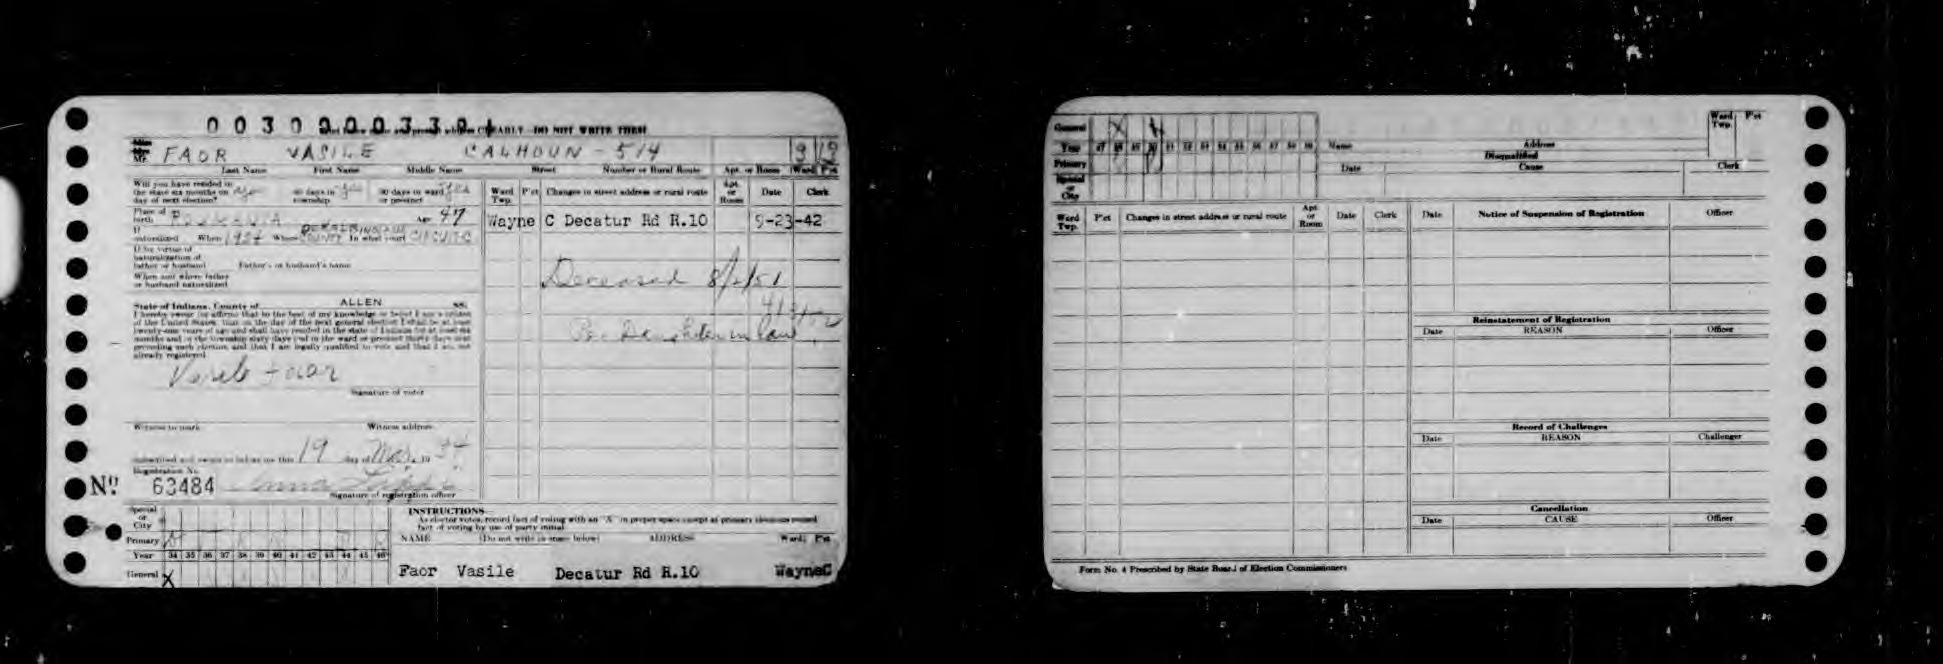 0030900033
CLEARLY - DO NOT WRITE THESE
Miss
Mrs.
Mr. FAOR VASILE CALHOUN - 514 9 19
Last Name First Name Middle Name Street Number or Rural Route Apt. or Room Ward P'ct
Will you have resided in
the state six months on yes 60 days in yes 30 days in ward yes
day of next election? township or precinct
Place of
birth ROUMANIA Age 47
If
naturalized When 1924 Where COUNTY In what court CIRCUIT
If by virtue of
naturalization of
father or husband Father's or husband's name
When and where father
or husband naturalized
State of Indiana, County of ALLEN ss.
I hereby swear (or affirm) that to the best of my knowledge or belief I am a citizen
of the United States, that on the day of the next general election I shall be at least
twenty-one years of age and shall have resided in the state of Indiana for at least six
months and in the township sixty days and in the ward or precinct thirty days next
preceding such election, and that I am legally qualified to vote and that I am not
already registered
Vasile Faor
Signature of voter
Witness to mark Witness address
Subscribed and sworn to before me this 19 day of Mar. 19 34
Registration No.
No. 63484 Anna
Signature of registration officer
Ward Twp. P'ct Changes in street address or rural route Apt. or Room Date Clerk
Wayne C Decatur Rd R.10 9-23-42
Deceased 8/2/51
Per Daughter in law
Special
or
City
Primary
Year 34 35 36 37 38 39 40 41 42 43 44 45 46
General X
INSTRUCTIONS
As elector votes, record fact of voting with an "X" in proper space except at primary elections record
fact of voting by use of party initial
NAME (Do not write in space below) ADDRESS Ward P'ct
Faor Vasile Decatur Rd R.10 WayneC
General X X
Year 47 48 49 50 51 52 53 54 55 56 57 58 59
Primary
Special
or
City
Name Address Ward Twp. P'ct
Disqualified
Date Cause Clerk
Ward Twp. P'ct Changes in street address or rural route Apt. or Room Date Clerk
Date Notice of Suspension of Registration Officer
Reinstatement of Registration
Date REASON Officer
Record of Challenges
Date REASON Challenger
Cancellation
Date CAUSE Officer
Form No. 4 Prescribed by State Board of Election Commissioners